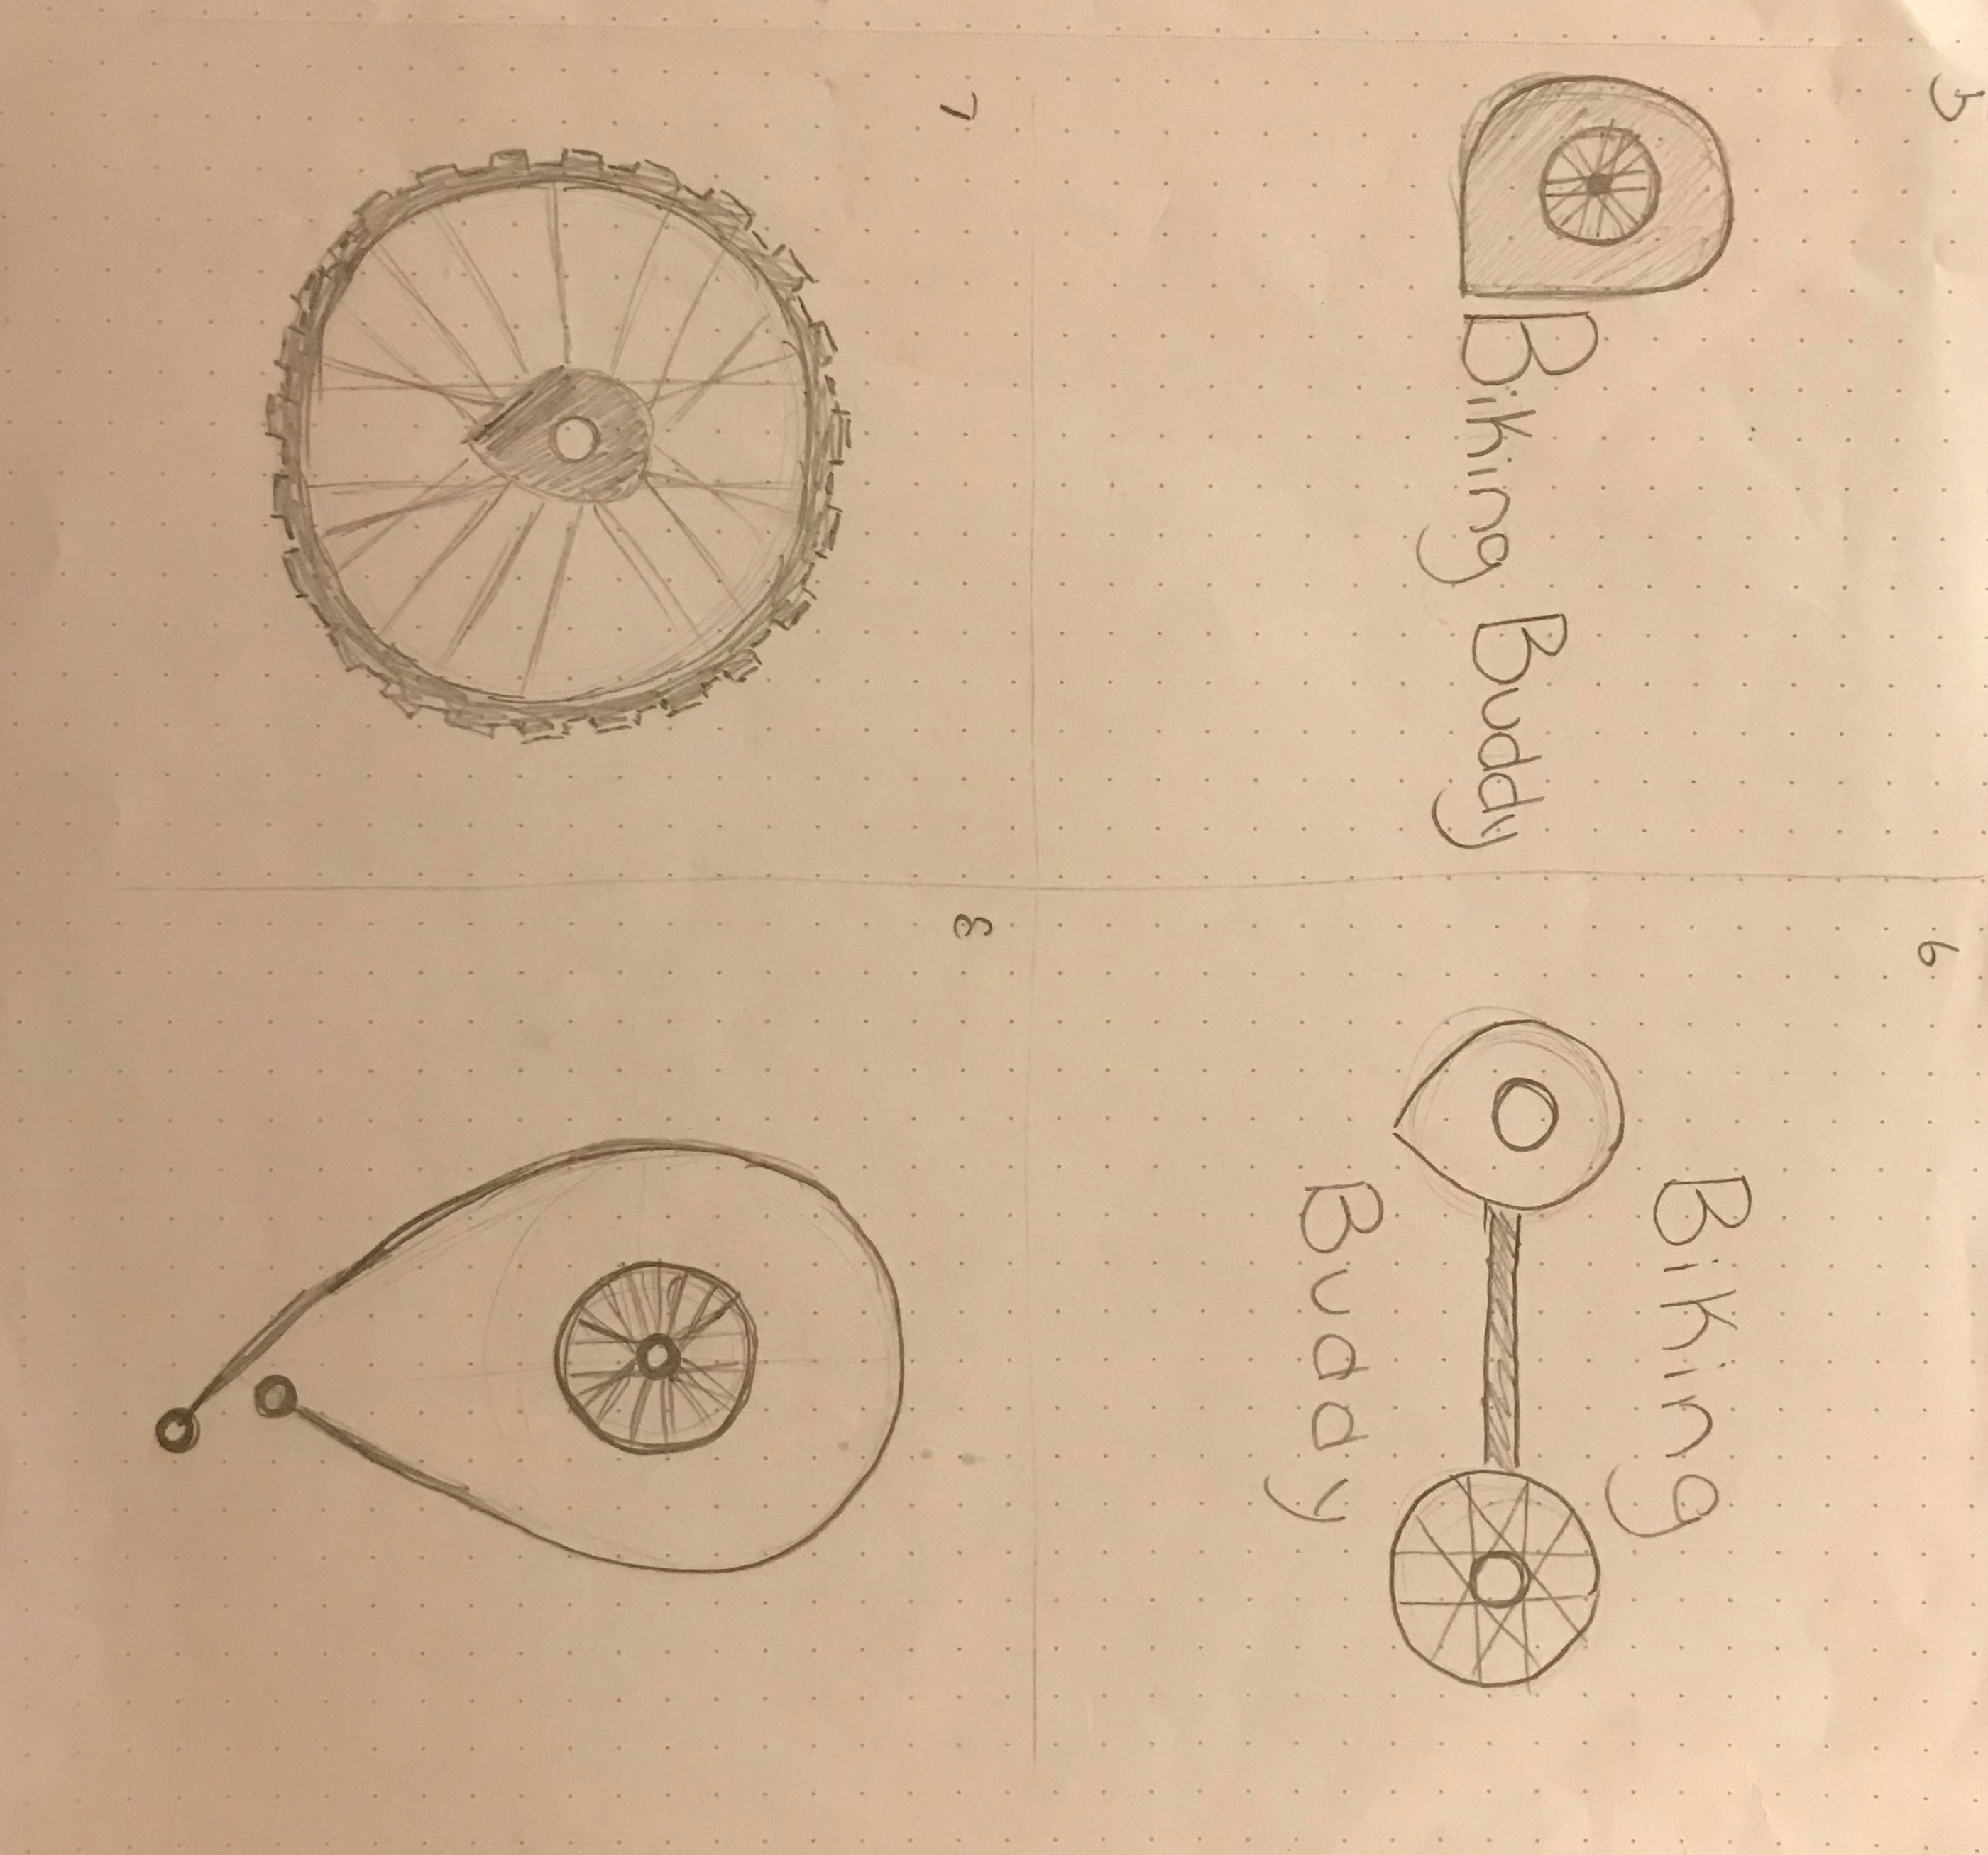 5
Biking Buddy
6
Biking
Buddy
7
8